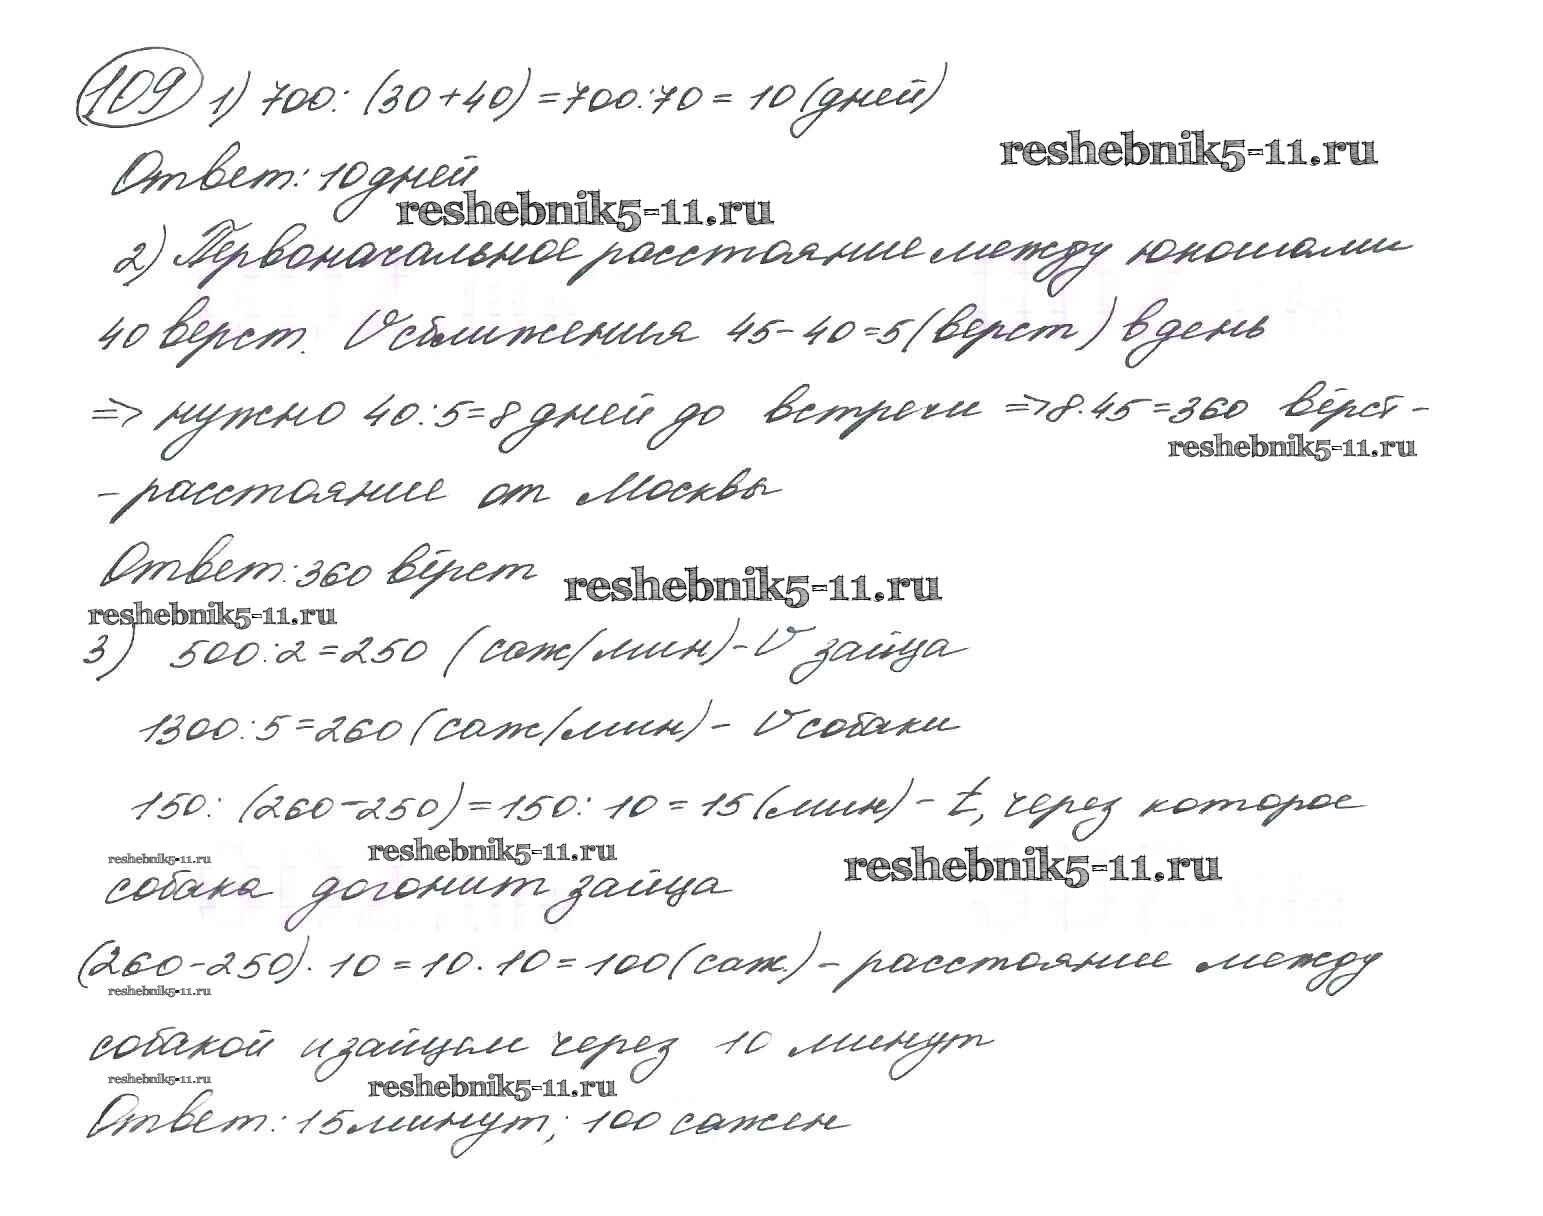 109 1) 700 : (30 + 40) = 700 : 70 = 10 (дней)
reshebnik5-11.ru
Ответ: 10 дней
reshebnik5-11.ru
2) Первоначальное расстояние между юношами
40 верст. V сближения 45 - 40 = 5 (верст) в день
=> нужно 40 : 5 = 8 дней до встречи => 8 · 45 = 360 вёрст -
reshebnik5-11.ru
- расстояние от Москвы
Ответ: 360 вёрст
reshebnik5-11.ru
reshebnik5-11.ru
3) 500 : 2 = 250 (саж/мин) - V зайца
1300 : 5 = 260 (саж/мин) - V собаки
150 : (260 - 250) = 150 : 10 = 15 (мин) - t, через которое
reshebnik5-11.ru
reshebnik5-11.ru
reshebnik5-11.ru
собака догонит зайца
(260 - 250) · 10 = 10 · 10 = 100 (саж.) - расстояние между
reshebnik5-11.ru
собакой и зайцем через 10 минут
reshebnik5-11.ru
reshebnik5-11.ru
Ответ: 15 минут; 100 сажен